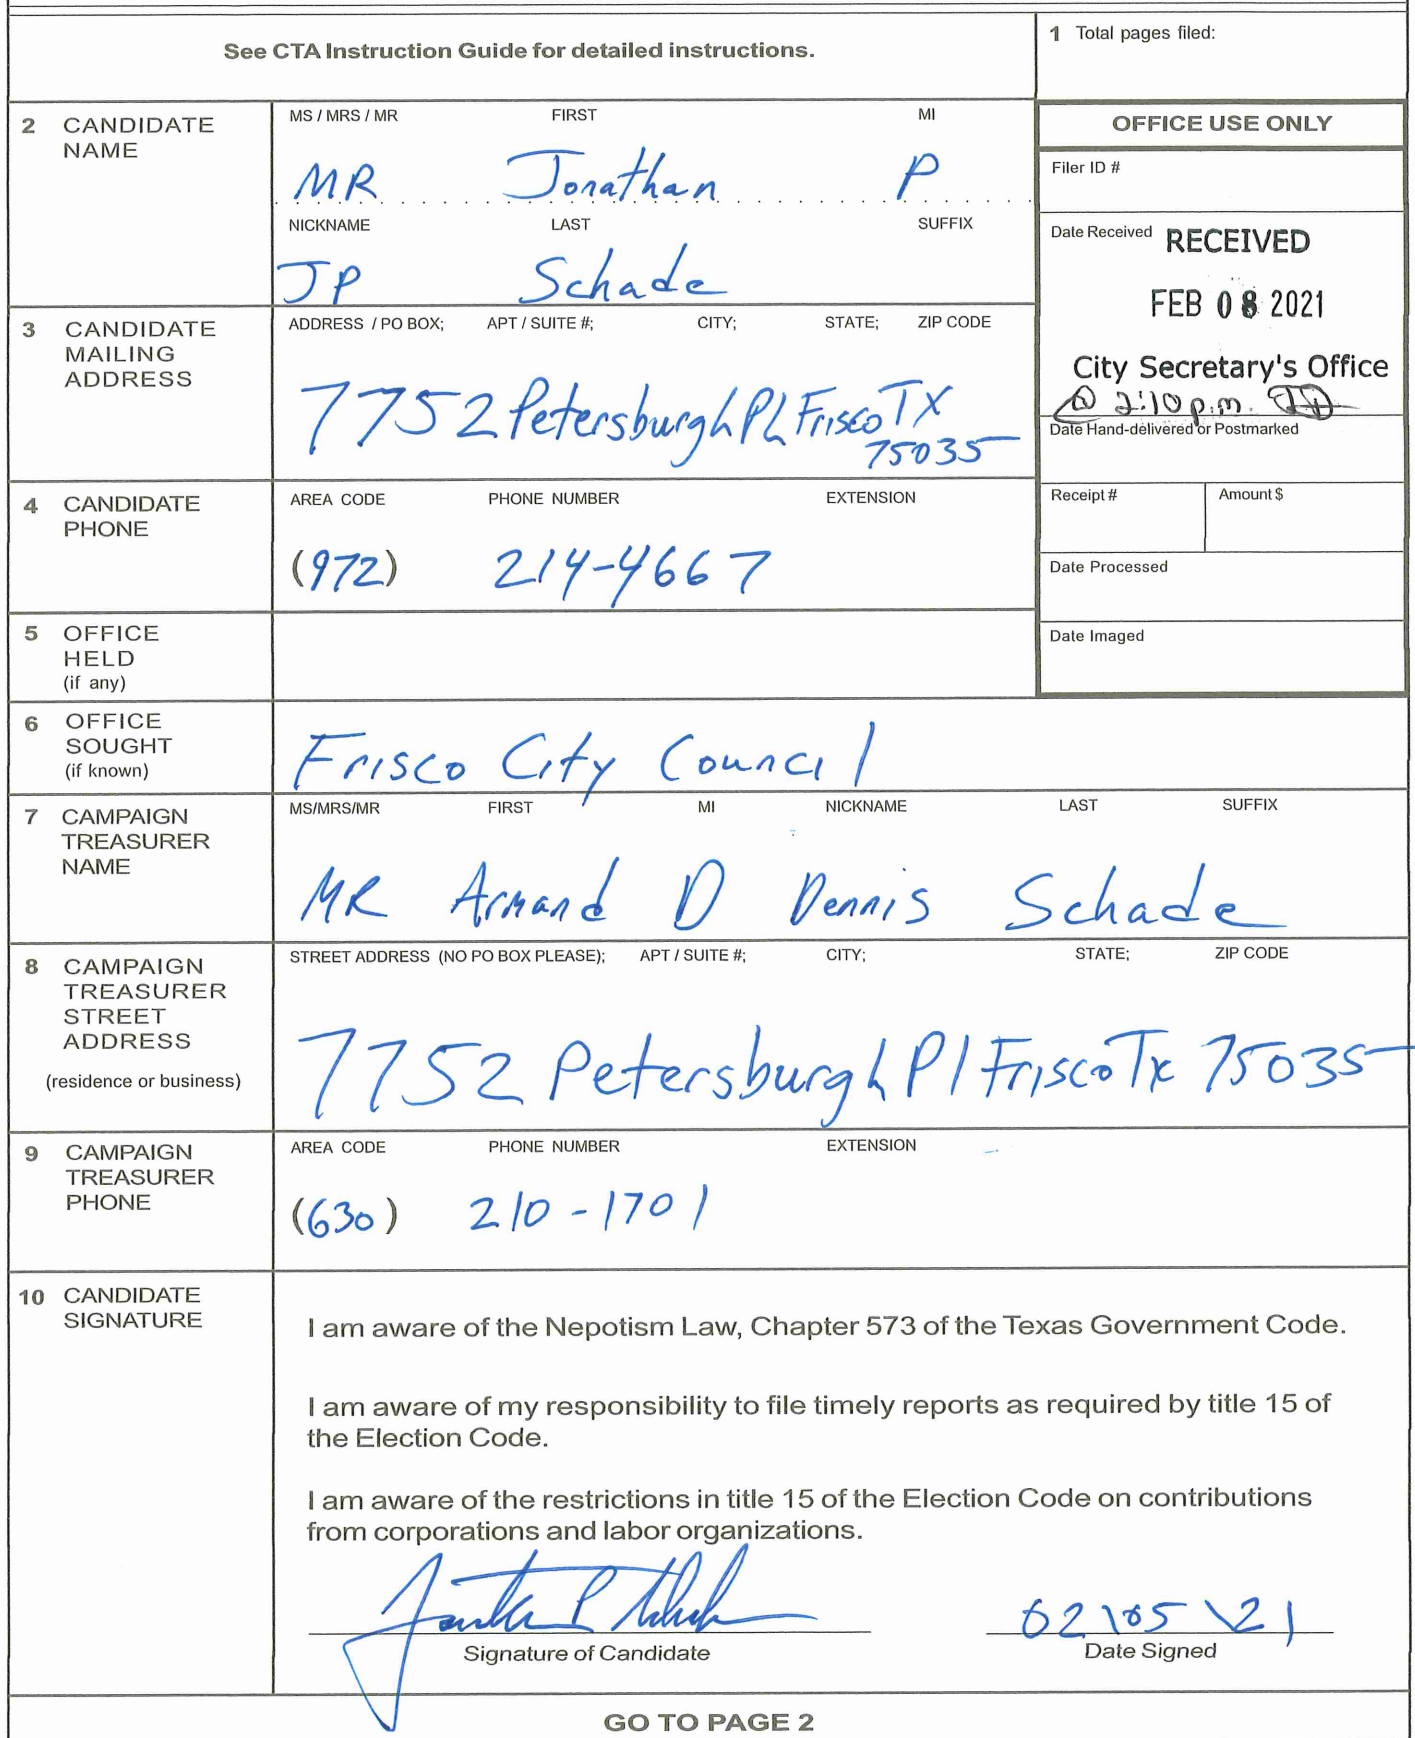 See CTA Instruction Guide for detailed instructions.
1 Total pages filed:
2 CANDIDATE NAME
MS / MRS / MR FIRST MI
MR Jonathan P
NICKNAME LAST SUFFIX
JP Schade
OFFICE USE ONLY
Filer ID #
Date Received RECEIVED
FEB 08 2021
City Secretary's Office
@ 2:10 p.m.
Date Hand-delivered or Postmarked
Receipt # Amount $
Date Processed
Date Imaged
3 CANDIDATE MAILING ADDRESS
ADDRESS / PO BOX; APT / SUITE #; CITY; STATE; ZIP CODE
7752 Petersburgh PL Frisco TX
75035
4 CANDIDATE PHONE
AREA CODE PHONE NUMBER EXTENSION
(972) 214-4667
5 OFFICE HELD (if any)
6 OFFICE SOUGHT (if known)
Frisco City Council
7 CAMPAIGN TREASURER NAME
MS/MRS/MR FIRST MI NICKNAME LAST SUFFIX
MR Armand D Dennis Schade
8 CAMPAIGN TREASURER STREET ADDRESS (residence or business)
STREET ADDRESS (NO PO BOX PLEASE); APT / SUITE #; CITY; STATE; ZIP CODE
7752 Petersburgh Pl Frisco Tx 75035
9 CAMPAIGN TREASURER PHONE
AREA CODE PHONE NUMBER EXTENSION
(630) 210-1701
10 CANDIDATE SIGNATURE
I am aware of the Nepotism Law, Chapter 573 of the Texas Government Code.
I am aware of my responsibility to file timely reports as required by title 15 of
the Election Code.
I am aware of the restrictions in title 15 of the Election Code on contributions
from corporations and labor organizations.
02\05\21
Signature of Candidate Date Signed
GO TO PAGE 2